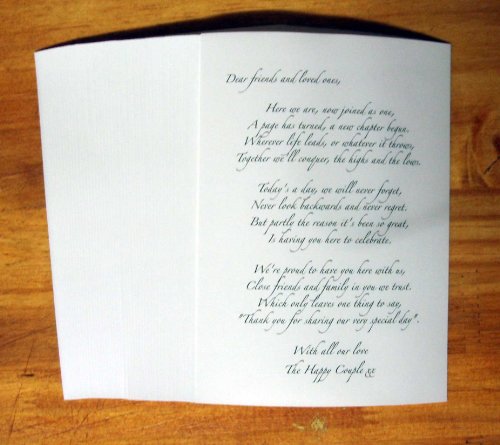 Dear friends and loved ones,
Here we are, now joined as one,
A page has turned, a new chapter begun.
Wherever life leads, or whatever it throws,
Together we'll conquer, the highs and the lows.
Today's a day, we will never forget,
Never look backwards and never regret.
But partly the reason it's been so great,
Is having you here to celebrate.
We're proud to have you here with us,
Close friends and family in you we trust.
Which only leaves one thing to say,
"Thank you for sharing our very special day".
With all our love
The Happy Couple xx